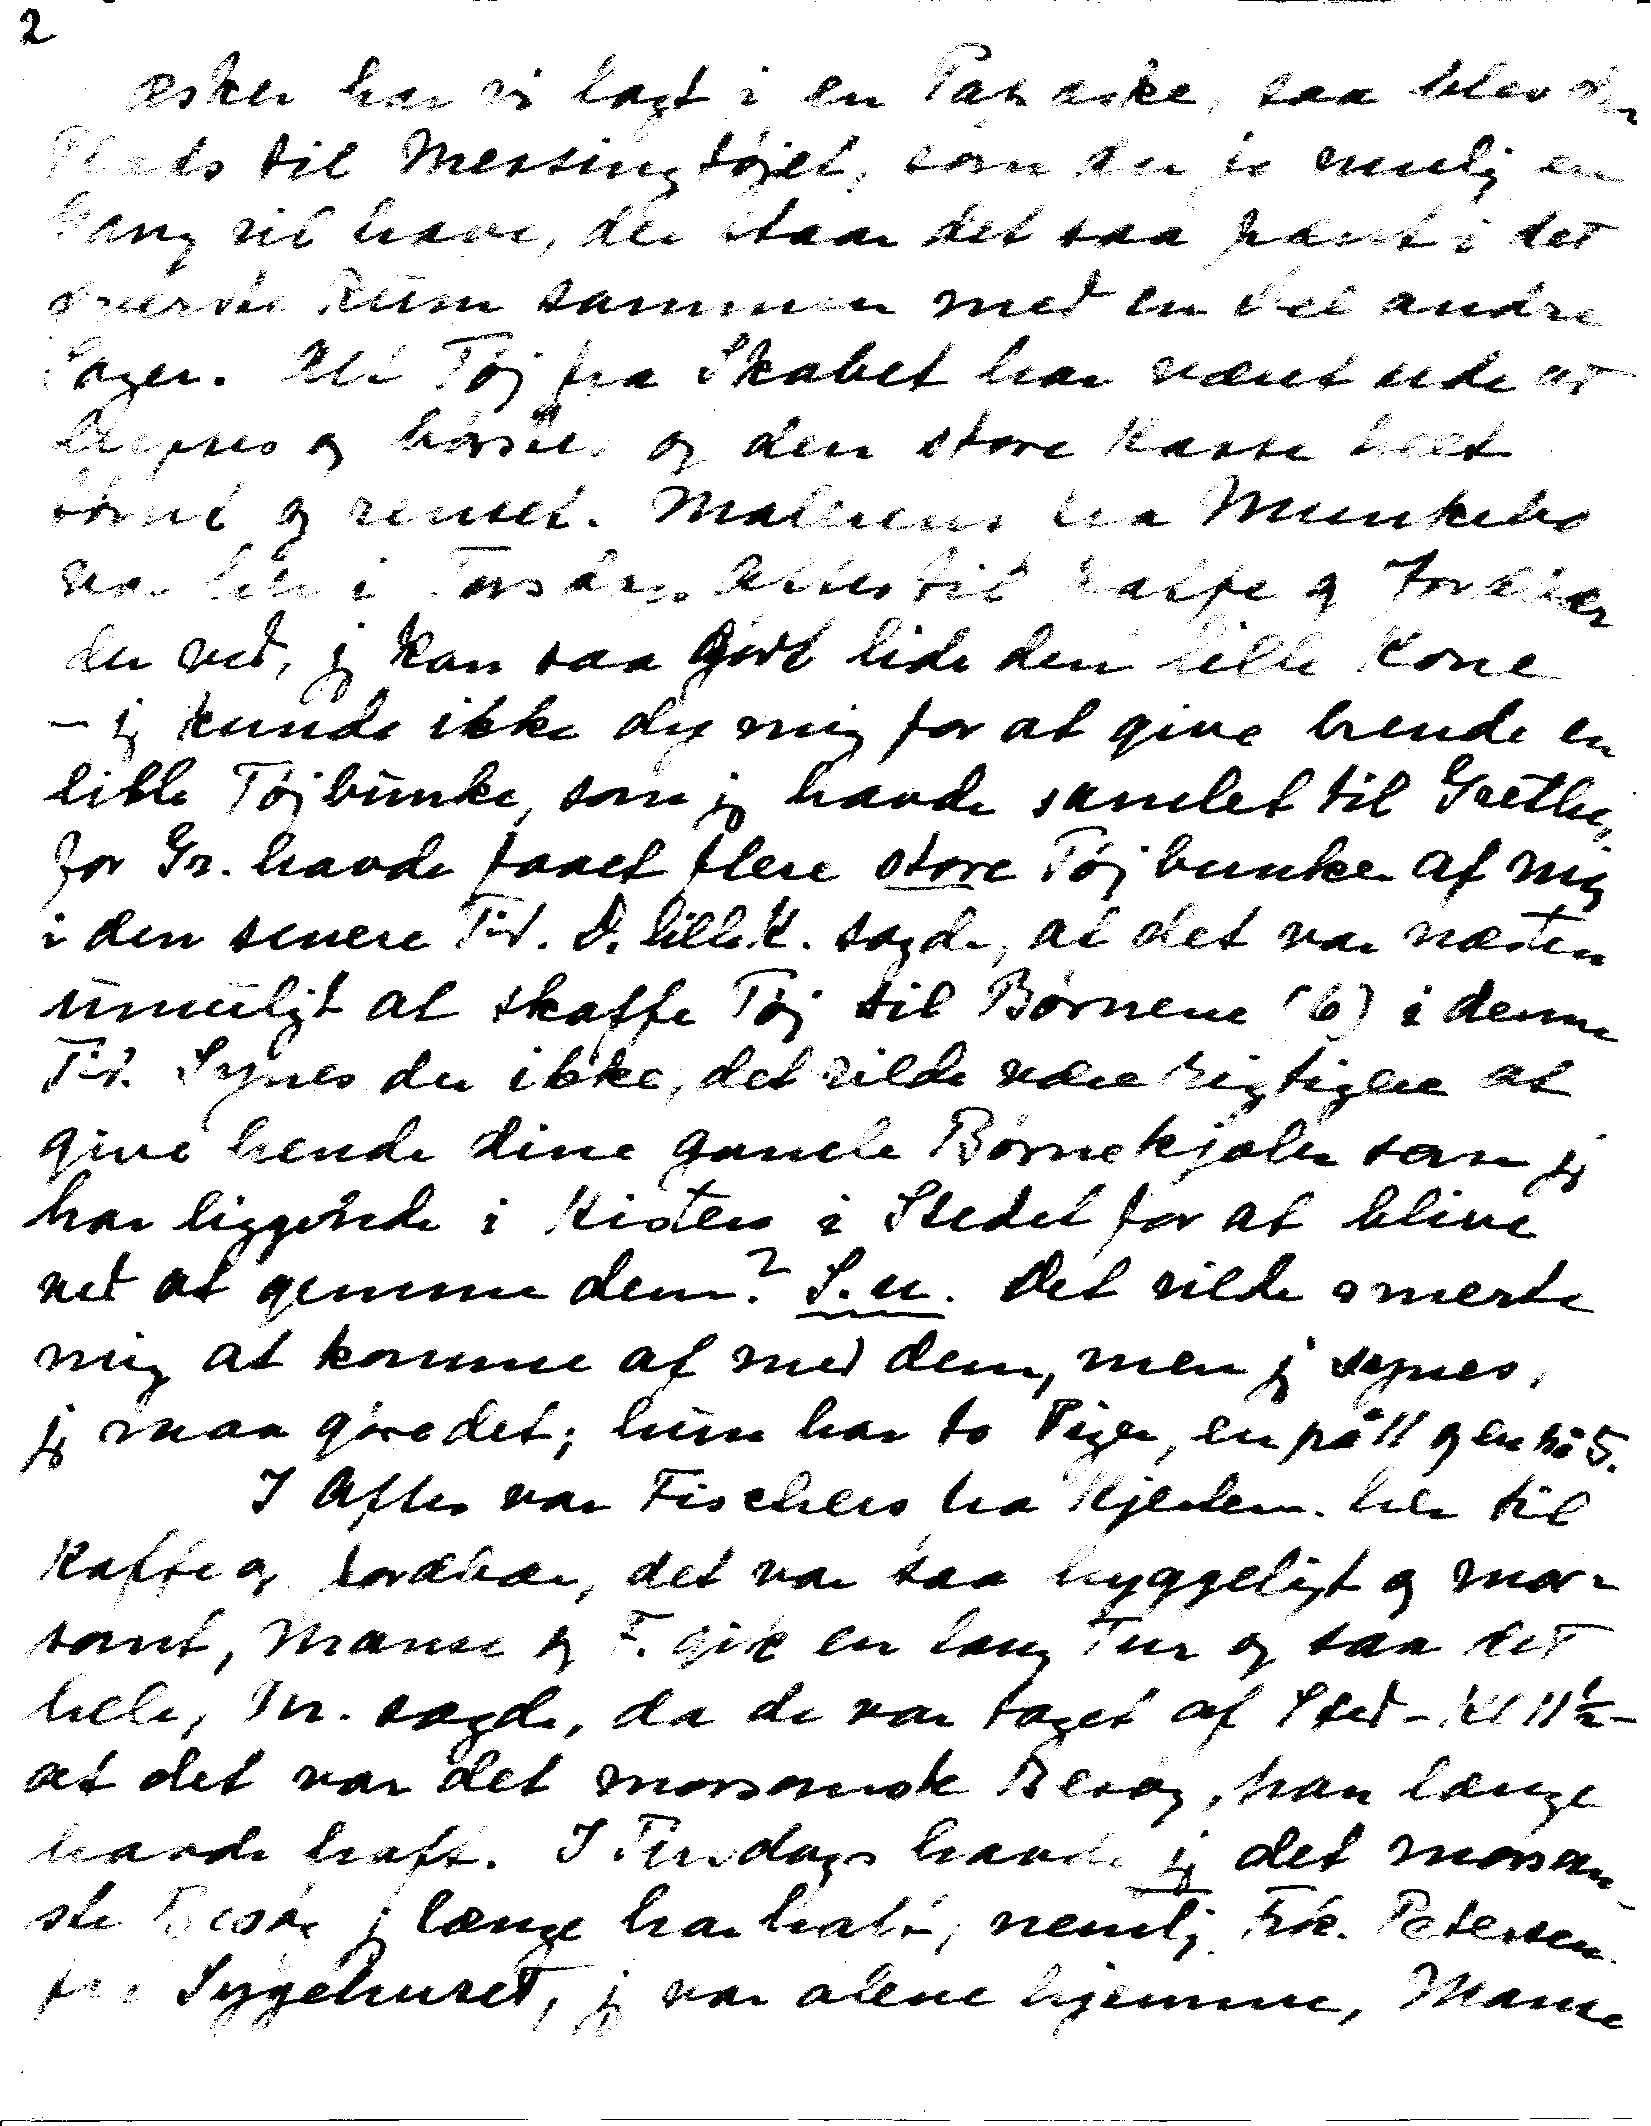 2
æsker har vi lagt i en Papæske, saa blev der
Plads til Messingtøjet, som du jo mulig en
Gang vil have, der staar det saa pænt i det
nederste Rum sammen med en Del andre
Sager. Alt Tøj fra Skabet har været ude at
luftes og børstes og den store Kasse helt
tømt og renset. Malerens fra Munkebo
var her i Torsdags Aftes til Kaffe og Jordbær
du ved, jeg kan saa godt lide den lille Kone
– jeg kunde ikke dy mig for at give hende en
lille Tøjbunke, som jeg havde samlet til Grethe,
for Gr. havde faaet flere store Tøjbunker af mig
i den senere Tid. D. lille K. sagde, at det var næsten
umuligt at skaffe Tøj til Børnene (6) i denne
Tid. Synes du ikke, det vilde være rigtigere at
give hende dine gamle Børnekjoler som jeg
har liggende i Kisten i Stedet for at blive
ved at gemme dem? S.u. Det vilde smerte
mig at komme af med dem, men jeg synes,
jeg maa gøre det; hun har to Piger, en på 11 og en på 5.
I Aftes var Fischers fra Kjertem. her til
Kaffe og Jordbær, det var saa hyggeligt og mor-
somt, Manse og F. gik en lang Tur og saa det
hele, M. sagde, da de var taget af Sted – Kl 11½ –
at det var det morsomste Besøg, han længe
havde haft. I Tirsdags havde jeg det morsom-
ste Besøg jeg længe har haft, nemlig Frk. Petersen
fra Sygehuset, jeg var alene hjemme, Manse